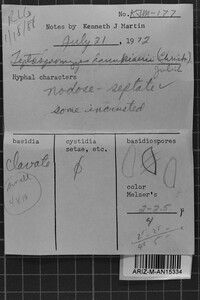 RLG
1/18/88
No. KJM-177
Notes by Kenneth J Martin
July 21, 1972
Hyphal characters
nodose-septate
some incrusted
basidia
cystidia
setae, etc.
basidiospores
clavate
small
4x10
color
Melzer's
2-2.5 μ
4
ARIZ-M-AN15334